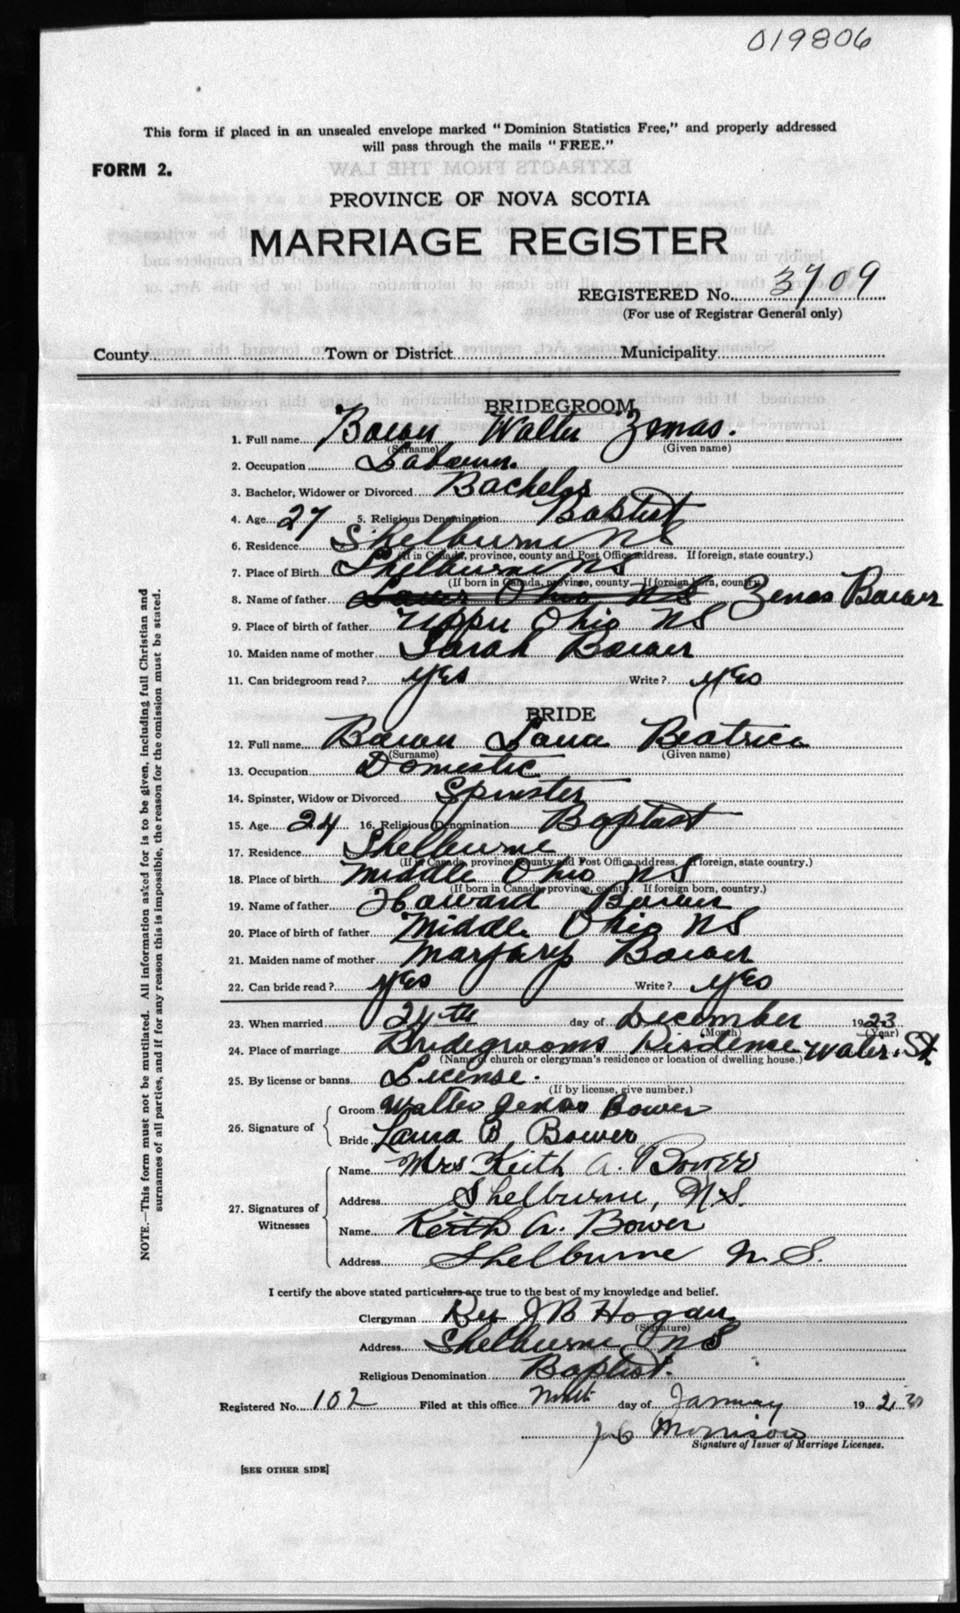 019806
This form if placed in an unsealed envelope marked "Dominion Statistics Free," and properly addressed
will pass through the mails "FREE."
FORM 2.
PROVINCE OF NOVA SCOTIA
MARRIAGE REGISTER
REGISTERED No. 3709
(For use of Registrar General only)
County Town or District Municipality
BRIDEGROOM
1. Full name Bower Walter Zenas.
(Surname) (Given name)
2. Occupation Labourer.
3. Bachelor, Widower or Divorced Bachelor
4. Age 27 5. Religious Denomination Baptist
6. Residence Shelburne NS
(If in Canada, province, county and Post Office address. If foreign, state country.)
7. Place of Birth Shelburne NS
(If born in Canada, province, county. If foreign born, country.)
8. Name of father Lower Ohio NS Zenas Bower
9. Place of birth of father Upper Ohio NS
10. Maiden name of mother Sarah Bower
11. Can bridegroom read? Yes Write? Yes
BRIDE
12. Full name Bower Laura Beatrice
(Surname) (Given name)
13. Occupation Domestic
14. Spinster, Widow or Divorced Spinster
15. Age 24 16. Religious Denomination Baptist
17. Residence Shelburne
(If in Canada, province County and Post Office address. If foreign, state country.)
18. Place of birth Middle Ohio NS
(If born in Canada, province, county. If foreign born, country.)
19. Name of father Howard Bower
20. Place of birth of father Middle Ohio NS
21. Maiden name of mother Marjary Bower
22. Can bride read? Yes Write? Yes
23. When married 24th day of December 1923
(Month) (Year)
24. Place of marriage Bridegrooms Residence Water St.
(Name of church or clergyman's residence or location of dwelling house.)
25. By license or banns License.
(If by license, give number.)
26. Signature of
Groom Walter Zenas Bower
Bride Laura B Bower
27. Signatures of Witnesses
Name Mrs Keith A. Bower
Address Shelburne, N.S.
Name Keith A. Bower
Address Shelburne N.S.
I certify the above stated particulars are true to the best of my knowledge and belief.
Clergyman Rev J B Hogan
(Signature)
Address Shelburne NS
Religious Denomination Baptist.
Registered No. 102 Filed at this office day of January 19
Morrison
Signature of Issuer of Marriage Licenses.
[SEE OTHER SIDE]
NOTE.—This form must not be mutilated. All information asked for is to be given, including full Christian and
surnames of all parties, and if for any reason this is impossible, the reason for the omission must be stated.